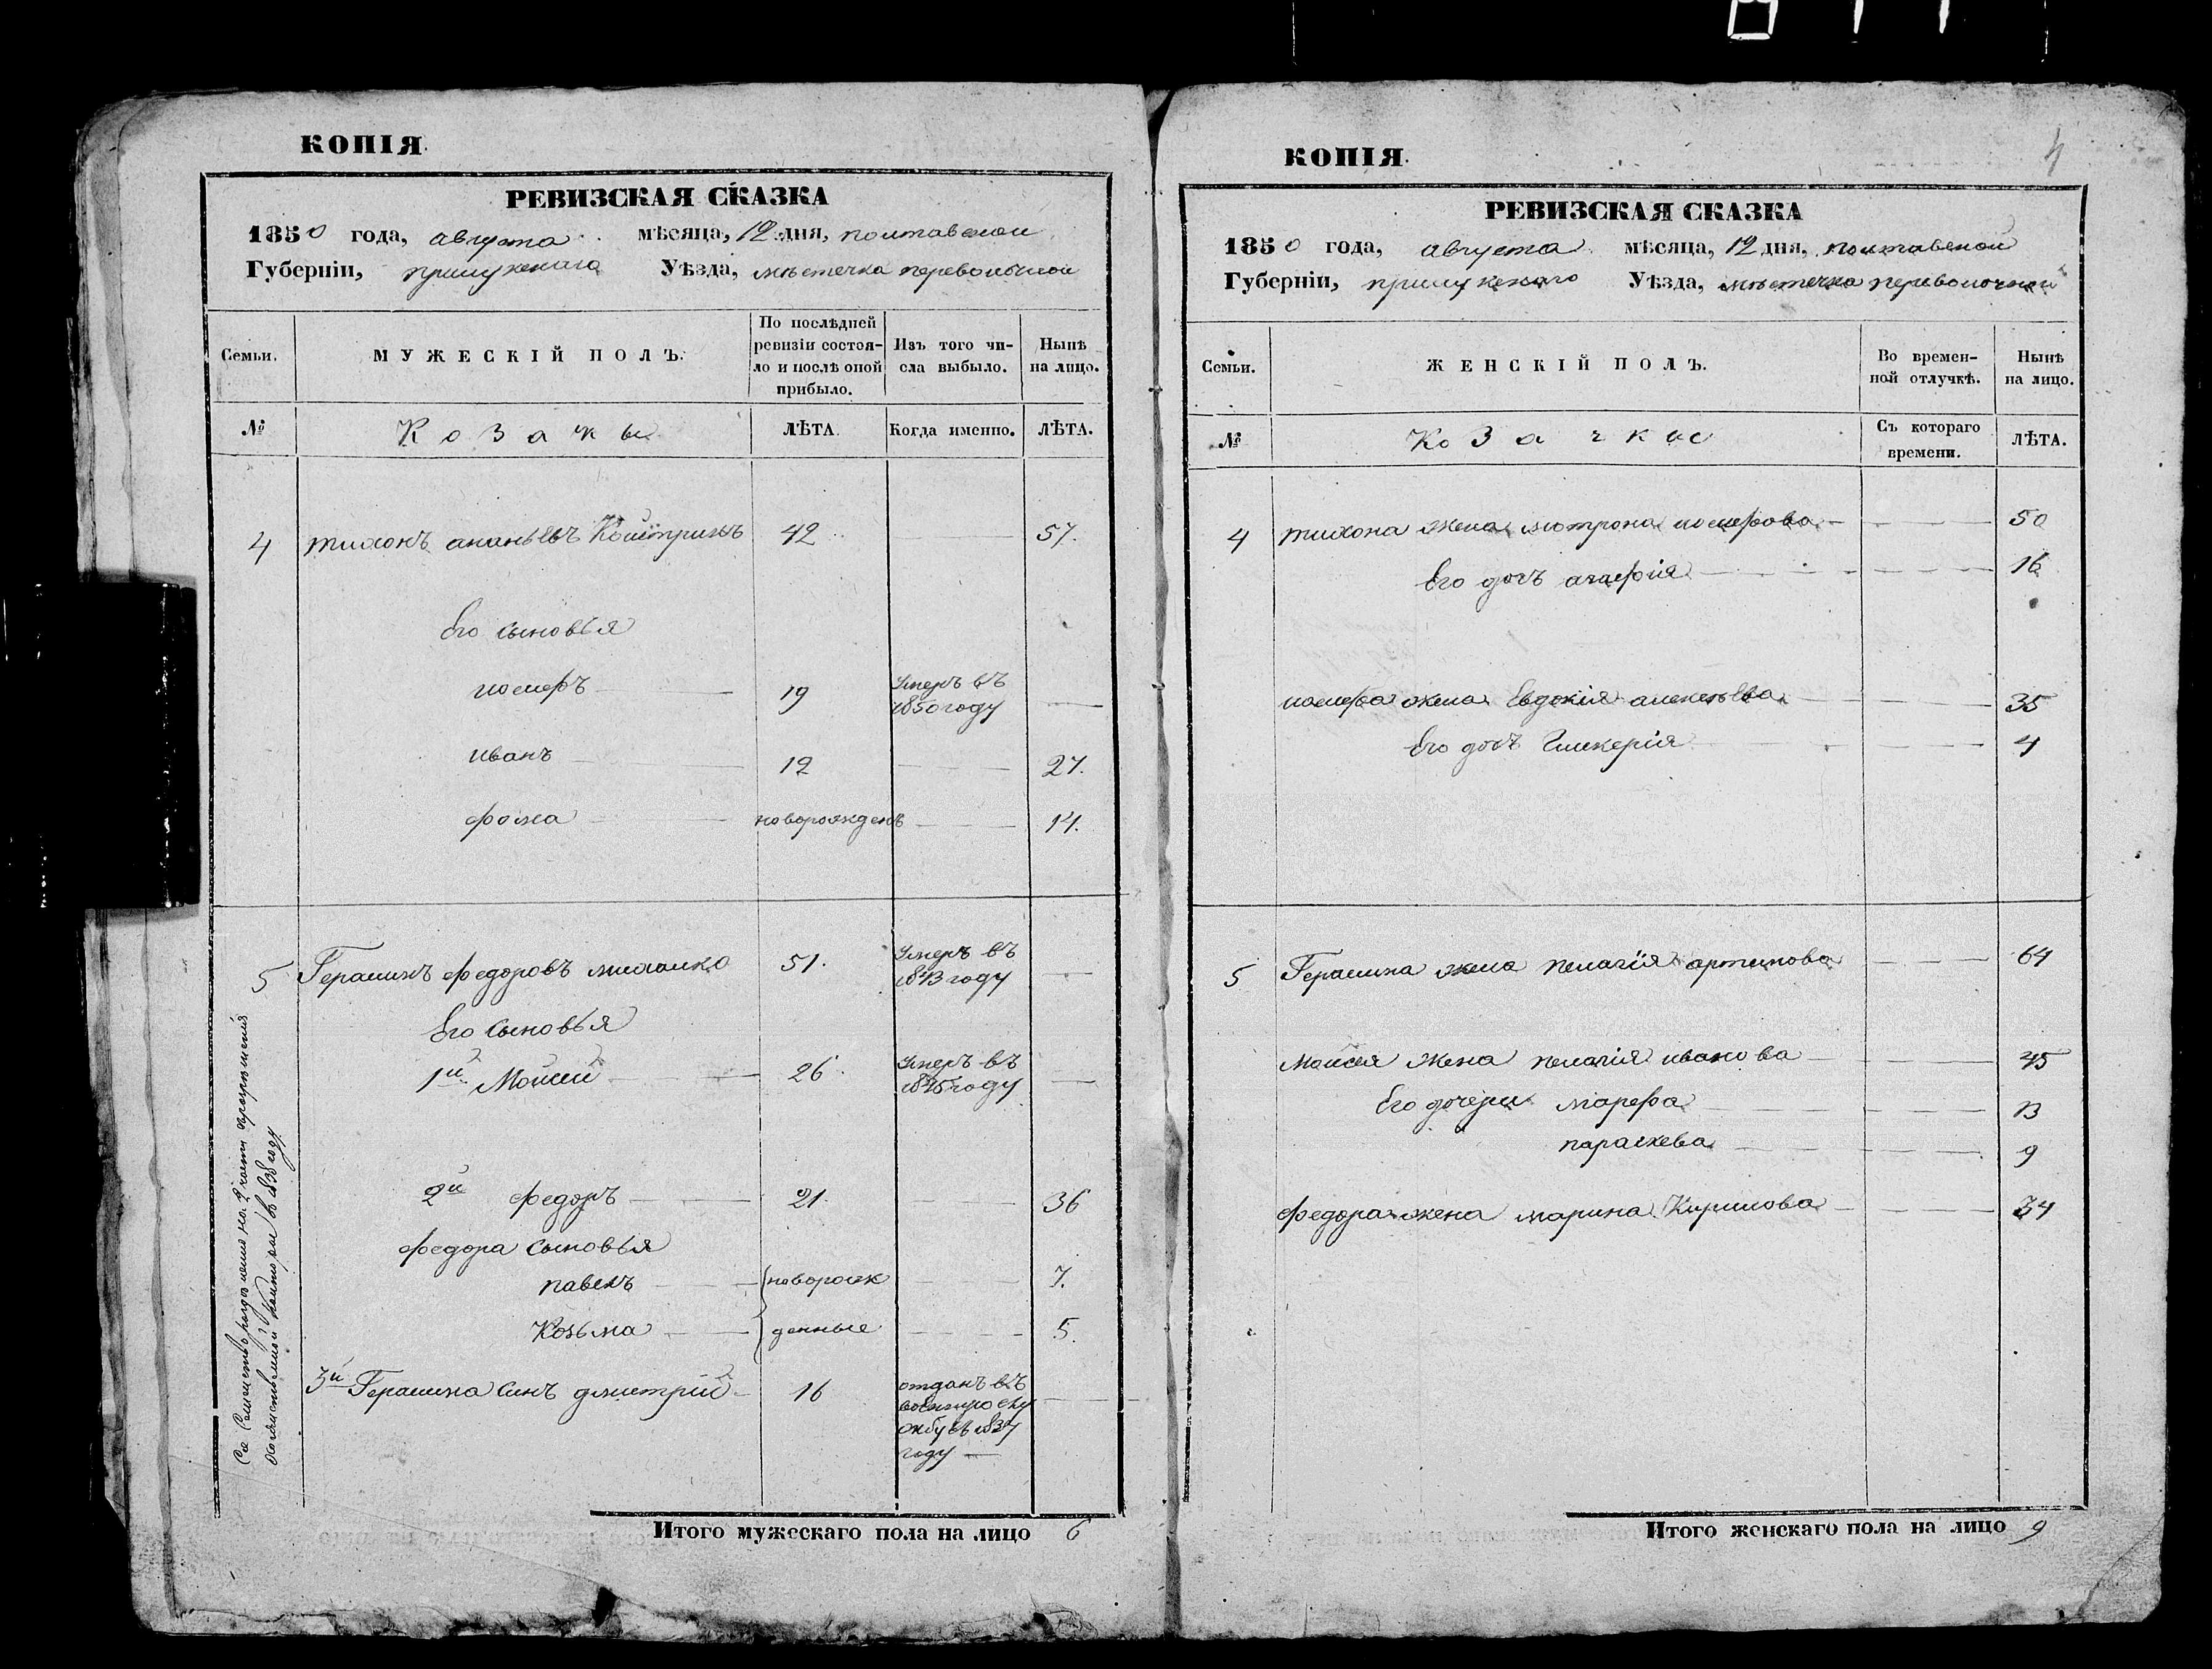 КОПІЯ.
РЕВИЗСКАЯ СКАЗКА
1850 года, августа мѣсяца, 12 дня, полтавской
Губерніи, прилужскаго Уѣзда, мѣстечка переволочной
Семьи. МУЖЕСКІЙ ПОЛЪ. По послѣдней ревизіи состояло и послѣ оной прибыло. Изъ того числа выбыло. Нынѣ на лицо.
№ Козаки ЛѢТА. Когда именно. ЛѢТА.
4 тихонъ ананьевъ 42 57.
Его сыновья
иосифъ 19 Умеръ въ 1850 году
иванъ 12 27.
фома новорожденъ 14.
5 Герасимъ федоровъ михалко 51. Умеръ въ 1843 году
Его сыновья
1й Моисей 26. Умеръ въ 1845 году
2й федоръ 21. 36
федора сыновья
павелъ новорож 7.
Козьма денные 5.
3й Герасима синъ дмитрій 16 отданъ въ военную службу въ году
Сие семейство в 1838 году
Итого мужескаго пола на лицо 6
4
КОПІЯ.
РЕВИЗСКАЯ СКАЗКА
1850 года, августа мѣсяца, 12 дня, полтавской
Губерніи, прилужскаго Уѣзда, мѣстечка переволочной
Семьи. ЖЕНСКІЙ ПОЛЪ. Во временной отлучкѣ. Нынѣ на лицо.
№ Козачки Съ котораго времени. ЛѢТА.
4 тихона жена мотрона иосифова 50
Его дочъ агафія 16
иосифа жена Евдокія алексѣева 35
Его дочъ Гликерія 4
5 Герасима жена пелагія артемова 64
Моисея жена пелагія иванова 45
Его дочери марефа 13
параскева 9
федора жена марина Кирилова 34
Итого женскаго пола на лицо 9